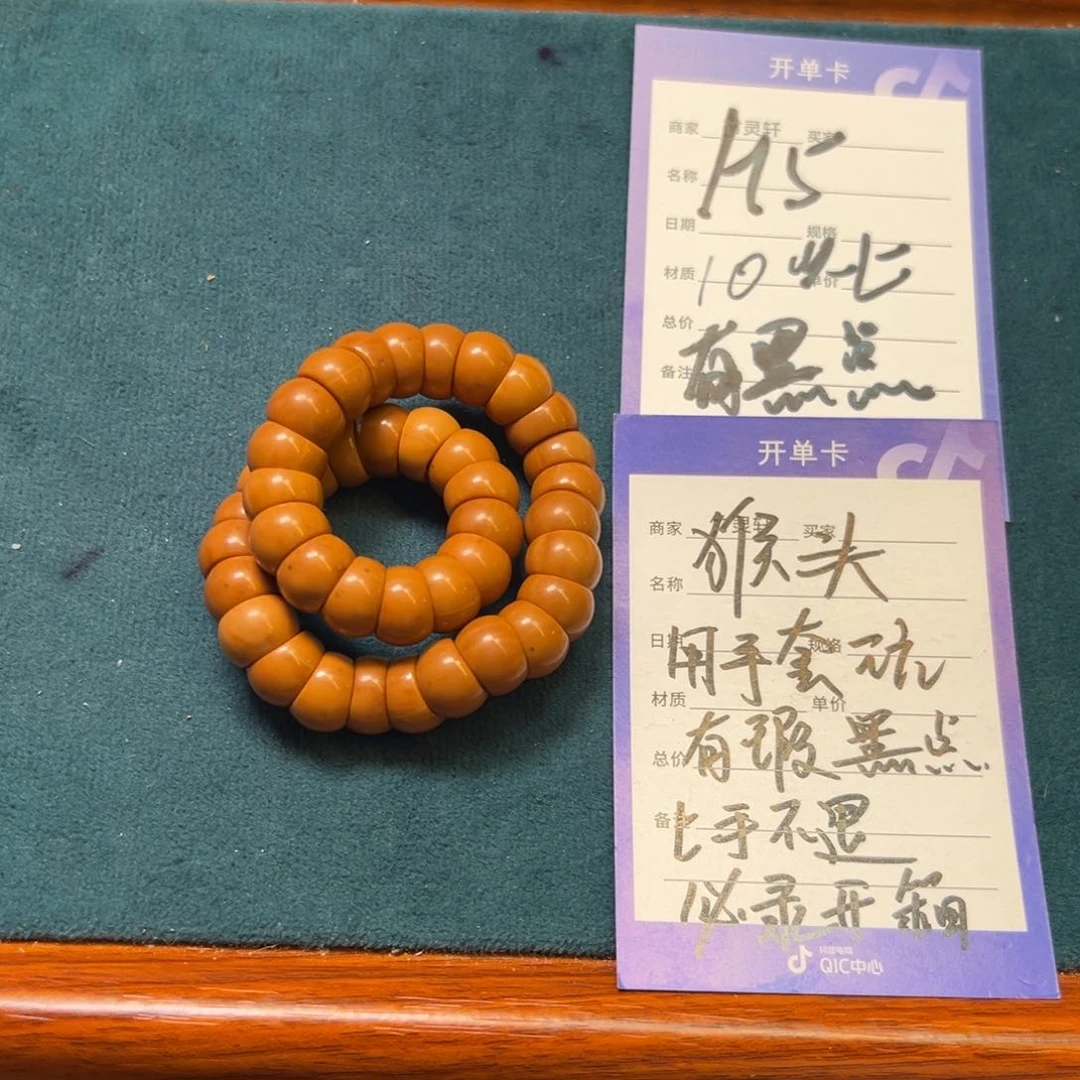 开单卡
商家 灵轩 买家
名称
H5
日期 规格
材质 单价
10
总价
备注
有黑点
开单卡
商家 灵轩 买家
猴头
名称
日期 规格
用手套
材质 单价
总价
有瑕黑点
备注
上手不退
必录开箱
抖音电商
QIC中心